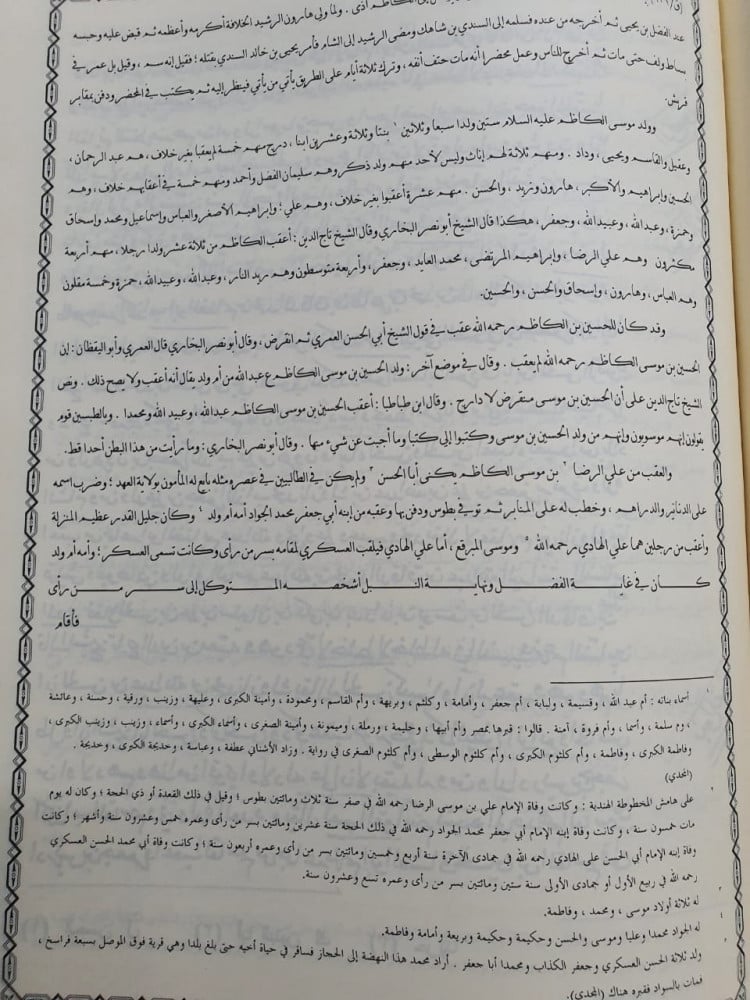 عند الفضل بن يحيى ثم أخرجه من عنده فسلمه إلى السندي بن شاهك ومضى الرشيد إلى الشام فأمر يحيى بن خالد السندي بقتله ؛ فقيل إنه سم ، وقيل بل عمر في
بساط ولف حتى مات ثم أخرج للناس وعمل محضرا أنه مات حتف أنفه ، وترك ثلاثة أيام على الطريق يأتي من يأتي فينظر إليه ثم يكتب في المحضر ودفن بمقابر
قريش.
وولد موسى الكاظم عليه السلام ستين ولدا سبعا وثلاثين ١ بنتا وثلاثة وعشرين ابنا ، درج منهم خمسة لم يعقبوا بغير خلاف ، هم عبد الرحمان ،
وعقيل والقاسم ويحيى ، وداد . ومنهم ثلاثة لهم إناث وليس لأحد منهم ولد ذكر وهم سليمان الفضل وأحمد ومنهم خمسة في أعقابهم خلاف ، وهم
الحسين وإبراهيم والأكبر ، هارون وزيد ، والحسن . منهم عشرة أعقبوا بغير خلاف ، وهم علي ؛ وإبراهيم الأصغر والعباس وإسماعيل ومحمد وإسحاق
وحمزة ، وعبد الله ، وعبيد الله ، وجعفر ، هكذا قال الشيخ أبو نصر البخاري وقال الشيخ تاج الدين : أعقب الكاظم من ثلاثة عشر ولدا رجلا ، منهم أربعة
مكثرون وهم علي الرضا ، وإبراهيم المرتضى ، محمد العابد ، وجعفر ، وأربعة متوسطون وهم زيد النار ، وعبد الله ، وعبيد الله ، حمزة وخمسة مقلون
وهم العباس ، وهارون ، وإسحاق والحسن ، والحسين.
وقد كان للحسين بن الكاظم رحمه الله عقب في قول الشيخ أبي الحسن العمري ثم انقرض ، وقال أبو نصر البخاري قال العمري وأبو اليقظان : إن
الحسين بن موسى الكاظم رحمه الله لم يعقب . وقال في موضع آخر : ولد الحسين بن موسى الكاظم ع عبد الله من أم ولد يقال أنه أعقب ولا يصح ذلك . ونص
الشيخ تاج الدين على أن الحسين بن موسى منقرض لا دارج . وقال ابن طباطبا : أعقب الحسين بن موسى الكاظم عبد الله ، وعبيد الله ومحمدا . وبالطبسين قوم
يقولون إنهم موسويون وإنهم من ولد الحسين بن موسى وكتبوا إلى كتبا وما أجبت عن شيء منها . وقال أبو نصر البخاري : وما رأيت من هذا البطن أحدا قط.
والعقب من علي الرضا ٢ بن موسى الكاظم يكنى أبا الحسن ٣ ولم يكن في الطالبيين في عصره مثله بايع له المأمون بولاية العهد ؛ وضرب اسمه
على الدنانير والدراهم ، وخطب له على المنابر ثم توفي بطوس ودفن بها وعقبه من ابنه أبي جعفر محمد الجواد أمه أم ولد ٤ وكان جليل القدر عظيم المنزلة
وأعقب من رجلين هما علي الهادي رحمه الله ٥ وموسى المبرقع ، أما علي الهادي فيلقب العسكري لمقامه بسر من رأى وكانت تسمى العسكر ؛ وأمه أم ولد
كان في غاية الفضل ونهاية النبل أشخصه المتوكل إلى سر من رأى
فأقام
١ أسماء بناته : أم عبد الله ، وقسيمة ، ولبابة ، أم جعفر ، وأمامة ، وكلثم ، وبريهة ، وأم القاسم ، ومحمودة ، وأمينة الكبرى ، وعليهة ، وزينب ، ورقية ، وحسنة ، وعائشة
، وم سلمة ، وأسما ، وأم فروة ، آمنة . قالوا : قبرها بمصر وأم أبيها ، وحليمة ، ورملة ، وميمونة ، وأمينة الصغرى ، وأسماء الكبرى ، وأسماء ، وزينب ، وزينب الكبرى ،
وفاطمة الكبرى ، وفاطمة ، وأم كلثوم الكبرى ، وأم كلثوم الوسطى ، وأم كلثوم الصغرى في رواية . وزاد الأشناني عطفة ، وعباسة ، وخديجة الكبرى ، وخديجة .
(المجدي)
٢ على هامش المخطوطة الهندية : وكانت وفاة الإمام علي بن موسى الرضا رحمه الله في صفر سنة ثلاث ومائتين بطوس ؛ وقيل في ذلك القعدة أو ذي الحجة ؛ وكان له يوم
مات خمسون سنة ، وكانت وفاة إبنه الإمام أبي جعفر محمد الجواد رحمه الله في ذلك الحجة سنة عشرين ومائتين بسر من رأى وعمره خمس وعشرون سنة وأشهر ؛ وكانت
وفاة إبنه الإمام أبي الحسن علي الهادي رحمه الله في جمادى الآخرة سنة أربع وخمسين ومائتين بسر من رأى وعمره أربعون سنة ؛ وكانت وفاة أبي محمد الحسن العسكري
رحمه الله في ربيع الأول أو جمادى الأولى سنة ستين ومائتين بسر من رأى وعمره تسع وعشرون سنة.
٣ له ثلاثة أولاد موسى ، ومحمد ، وفاطمة.
٤ له الجواد محمدا وعليا وموسى والحسن وحكيمة وحكيمة وبريعة وأمامة وفاطمة.
٥ ولد ثلاثة الحسن العسكري وجعفر الكذاب ومحمدا أبا جعفر . أراد محمد هذا النهضة إلى الحجاز فسافر في حياة أخيه حتى بلغ بلدا وهي قرية فوق الموصل بسبعة فراسخ ،
فمات بالسواد فقبره هناك (المجدي).